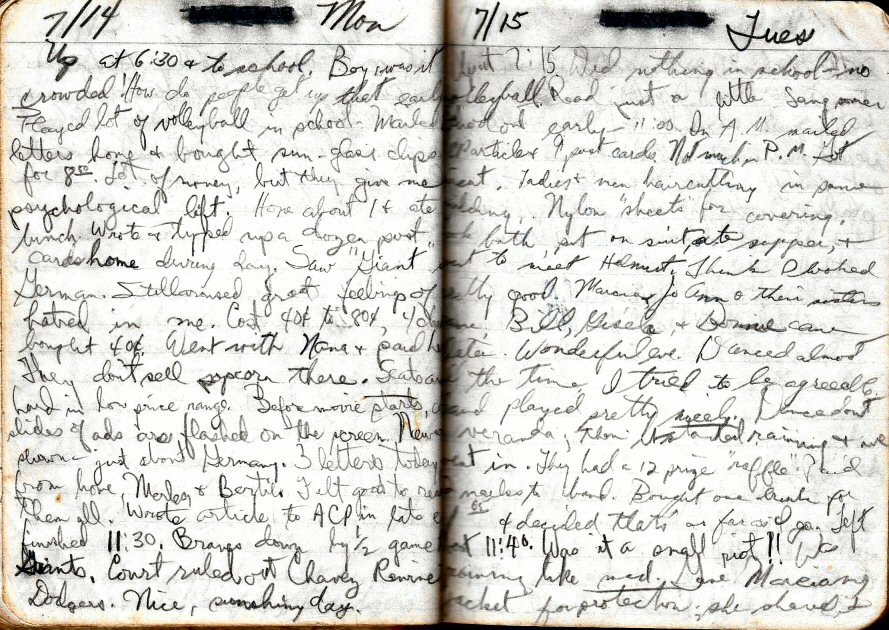 7/14 Mon
Up at 6:30 & to school. Boy, was it
crowded! How do people get up that early
Played lot of volleyball in school. Mailed
letters home & bought sun-glass clips
for 8.50. Lot of money, but they give me
psychological lift. Home about 1 & ate
lunch. Wrote & typed up a dozen post
cards home during day. Saw "Giant"
German. Still aroused great feelings of
hatred in me. Cost 40¢ to 80¢,
bought 40¢. Went with Nana & paid
They don't sell popcorn there. Seats are
hard in low price range. Before movie starts,
slides of ads are flashed on the screen. News
shown - just about Germany. 3 letters today
from home, & I felt good to read
them all. Wrote article to ACP in late
Finished 11:30. Braves down by 1/2 game
Giants. Court ruled out Chavez Ravine
Dodgers. Nice, sunshiny day.
7/15 Tues
7:15. Did nothing in school - no
volleyball. Read just a little. Sang some
out early - 11:00. In A.M. mailed
& 9 post cards. Not much in P.M. Got
Ladies & men haircutting in same
Nylon "sheets" for covering.
bath, put on suit, ate supper, &
to meet Helmut. Think I looked
good. Jo Ann & their sisters
Bill, Gisela & came
later. Wonderful eve. Danced almost
the time. I tried to be agreeable
and played pretty nicely. Danced on
veranda; then it started raining & we
went in. They had a 12 prize "raffle" & paid
to band. Bought one drink for
& decided that's as far as I go. Left
11:40. Was it a small riot!! Was
raining like mad. Gave
jacket for protection; she shared